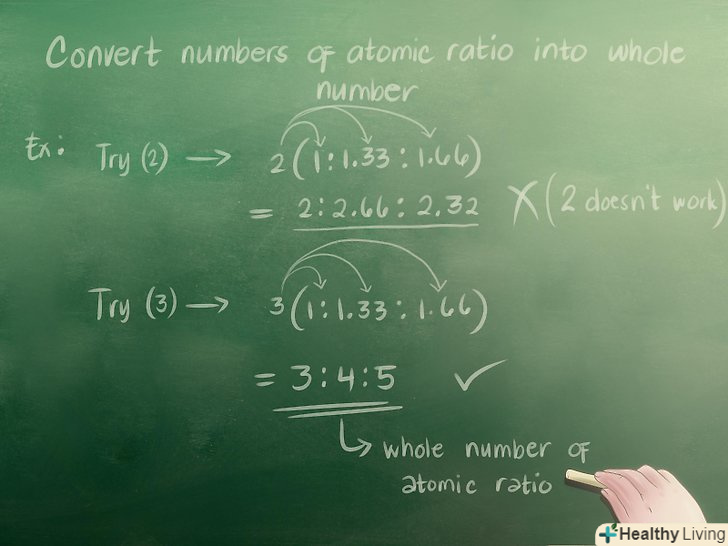 Convert numbers of atomic ratio into whole
number
Ex: Try (2) → 2(1:1.33:1.66)
= 2:2.66:2.32 X (2 doesn't work)
Try (3) → 3(1:1.33:1.66)
= 3:4:5 ✓
↳ whole number of
atomic ratio
Healthy Living